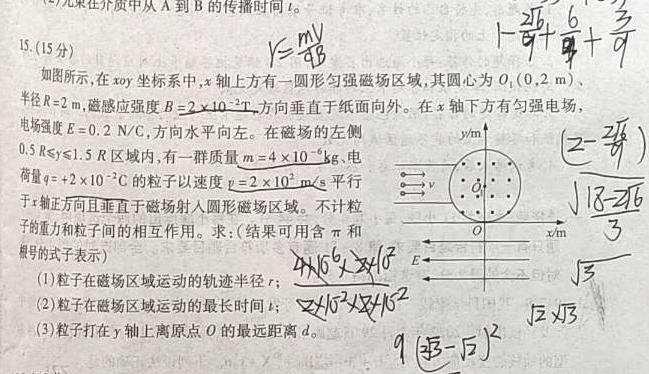 (2)光束在介质中从 A 到 B 的传播时间 t。
15.(15分)
r=mv/qB
1-2√6/9+6/9+3/9
如图所示,在 xoy 坐标系中,x 轴上方有一圆形匀强磁场区域,其圆心为 O₁(0,2 m)、
半径 R=2 m,磁感应强度 B=2×10⁻²T,方向垂直于纸面向外。在 x 轴下方有匀强电场,
电场强度 E=0.2 N/C,方向水平向左。在磁场的左侧
0.5 R≤y≤1.5 R 区域内,有一群质量 m=4×10⁻⁶kg、电
荷量 q=+2×10⁻²C 的粒子以速度 v=2×10² m/s 平行
于 x 轴正方向且垂直于磁场射入圆形磁场区域。不计粒
子的重力和粒子间的相互作用。求:(结果可用含 π 和
根号的式子表示)
(1)粒子在磁场区域运动的轨迹半径 r;
(2)粒子在磁场区域运动的最长时间 t;
(3)粒子打在 y 轴上离原点 O 的最远距离 d。
y/m
v
O₁
O
x/m
E
√3
√2×√3